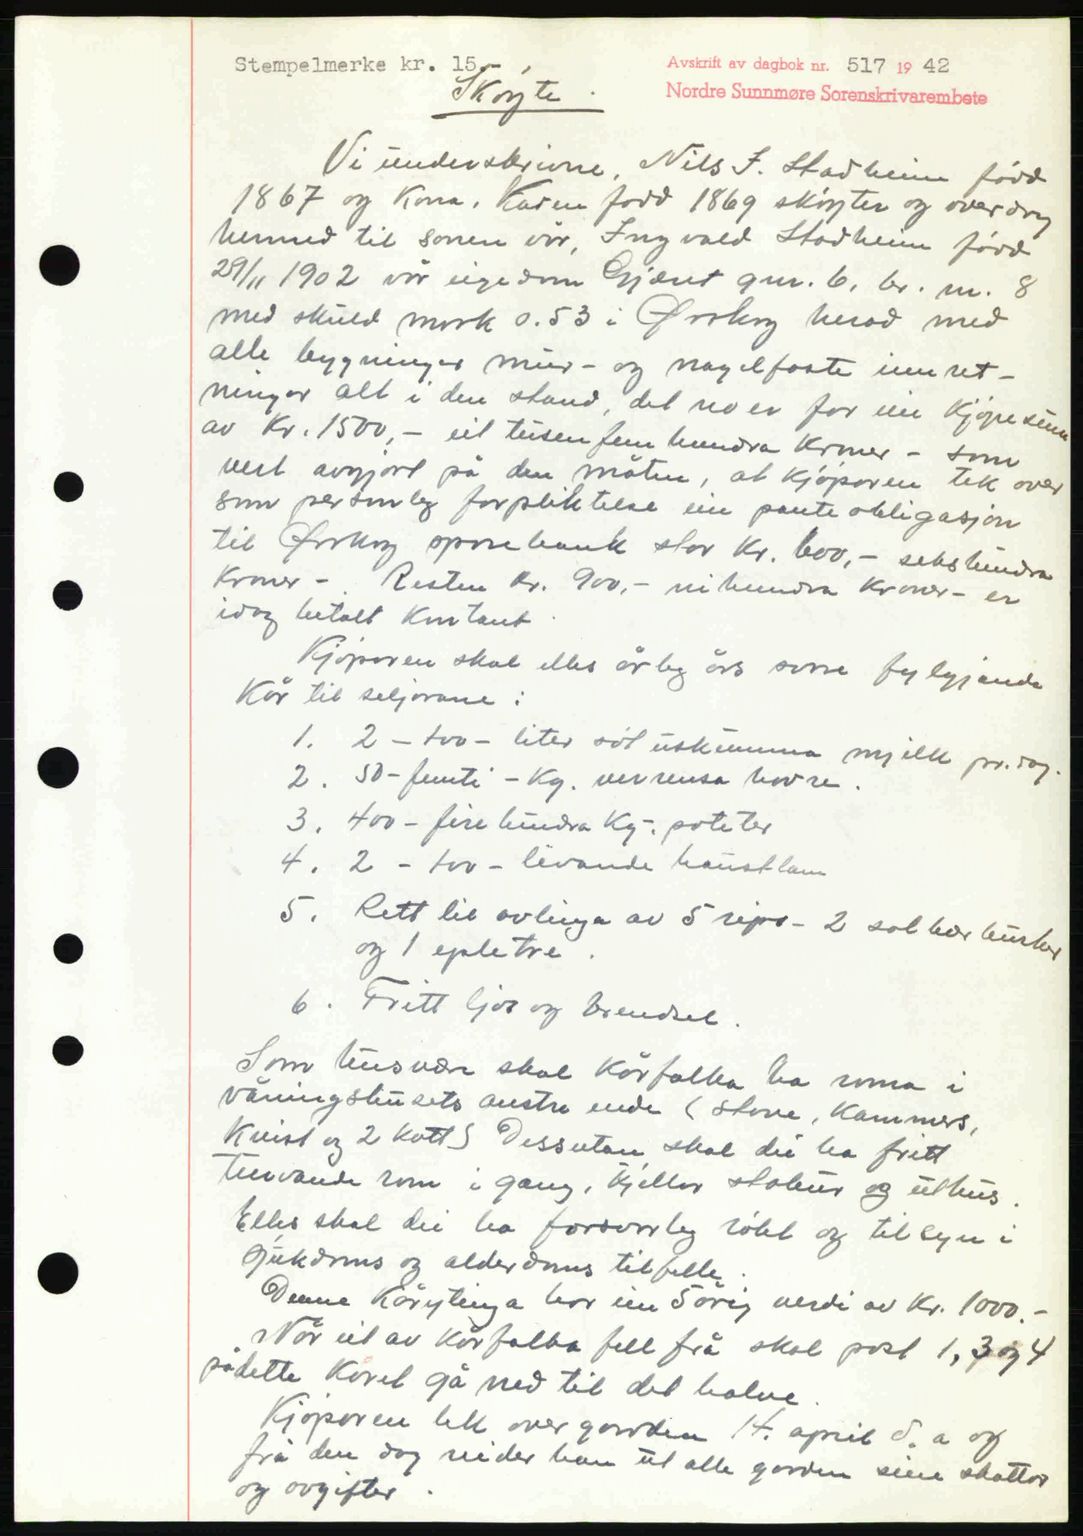 Stempelmerke kr. 15.-
Avskrift av dagbok nr. 517 19 42
Nordre Sunnmøre Sorenskrivarembete
Skøyte.
Vi underskrivne, Nils J. Stadheim fødd
1867 og kona, Karen fødd 1869 skøyter og overdreg
hermed til sonen vår, Ingvald Stadheim fødd
29/11 1902 vår eigedom gnr. 6, br. nr. 8
med skuld mark 0.53 i Ørskog herad med
alle bygninger mur- og nagelfaste innret-
ninger alt i den stand, det no er for ein kjøpesum
av Kr. 1500,- eit tusen fem hundra kroner - som
vert avgjort på den måten, at kjøparen tek over
som personleg forpliktelse ein panteobligasjon
til Ørskog sparebank stor kr. 600,- sekshundra
kroner - Resten kr. 900,- nihundra kroner - er
idag betalt kontant.
Kjøparen skal elles årleg års svare fylgjande
kår til seljarane:
1. 2 - too - liter søt uskumma mjelk pr. dag.
2. 50 - femti - kg. velrensa havre.
3. 400 - fire hundra kg. poteter
4. 2 - too - levande haustlam
5. Rett til avlinga av 5 rips- 2 solbær busker
og 1 epletre.
6. Fritt ljos og brendsel.
Som husvære skal kårfolka ha roma i
våningshusets austre ende (stove, kammers,
kvist og 2 kott) Dessutan skal dei ha fritt
turvande rom i gang, kjellar stabur og uthus.
Elles skal dei ha forsvarleg røkt og tilsyn i
sjukdoms og alderdoms tilfelle.
Denne kårytinga har ein 5 årig verdi av kr. 1000.-
Når eit av kårfolka fell frå skal post 1, 3 og 4
på dette kåret gå ned til det halve.
Kjøparen tek over garden 14. april d. a og
frå den dag reider han ut alle garden sine skattar
og avgifter.